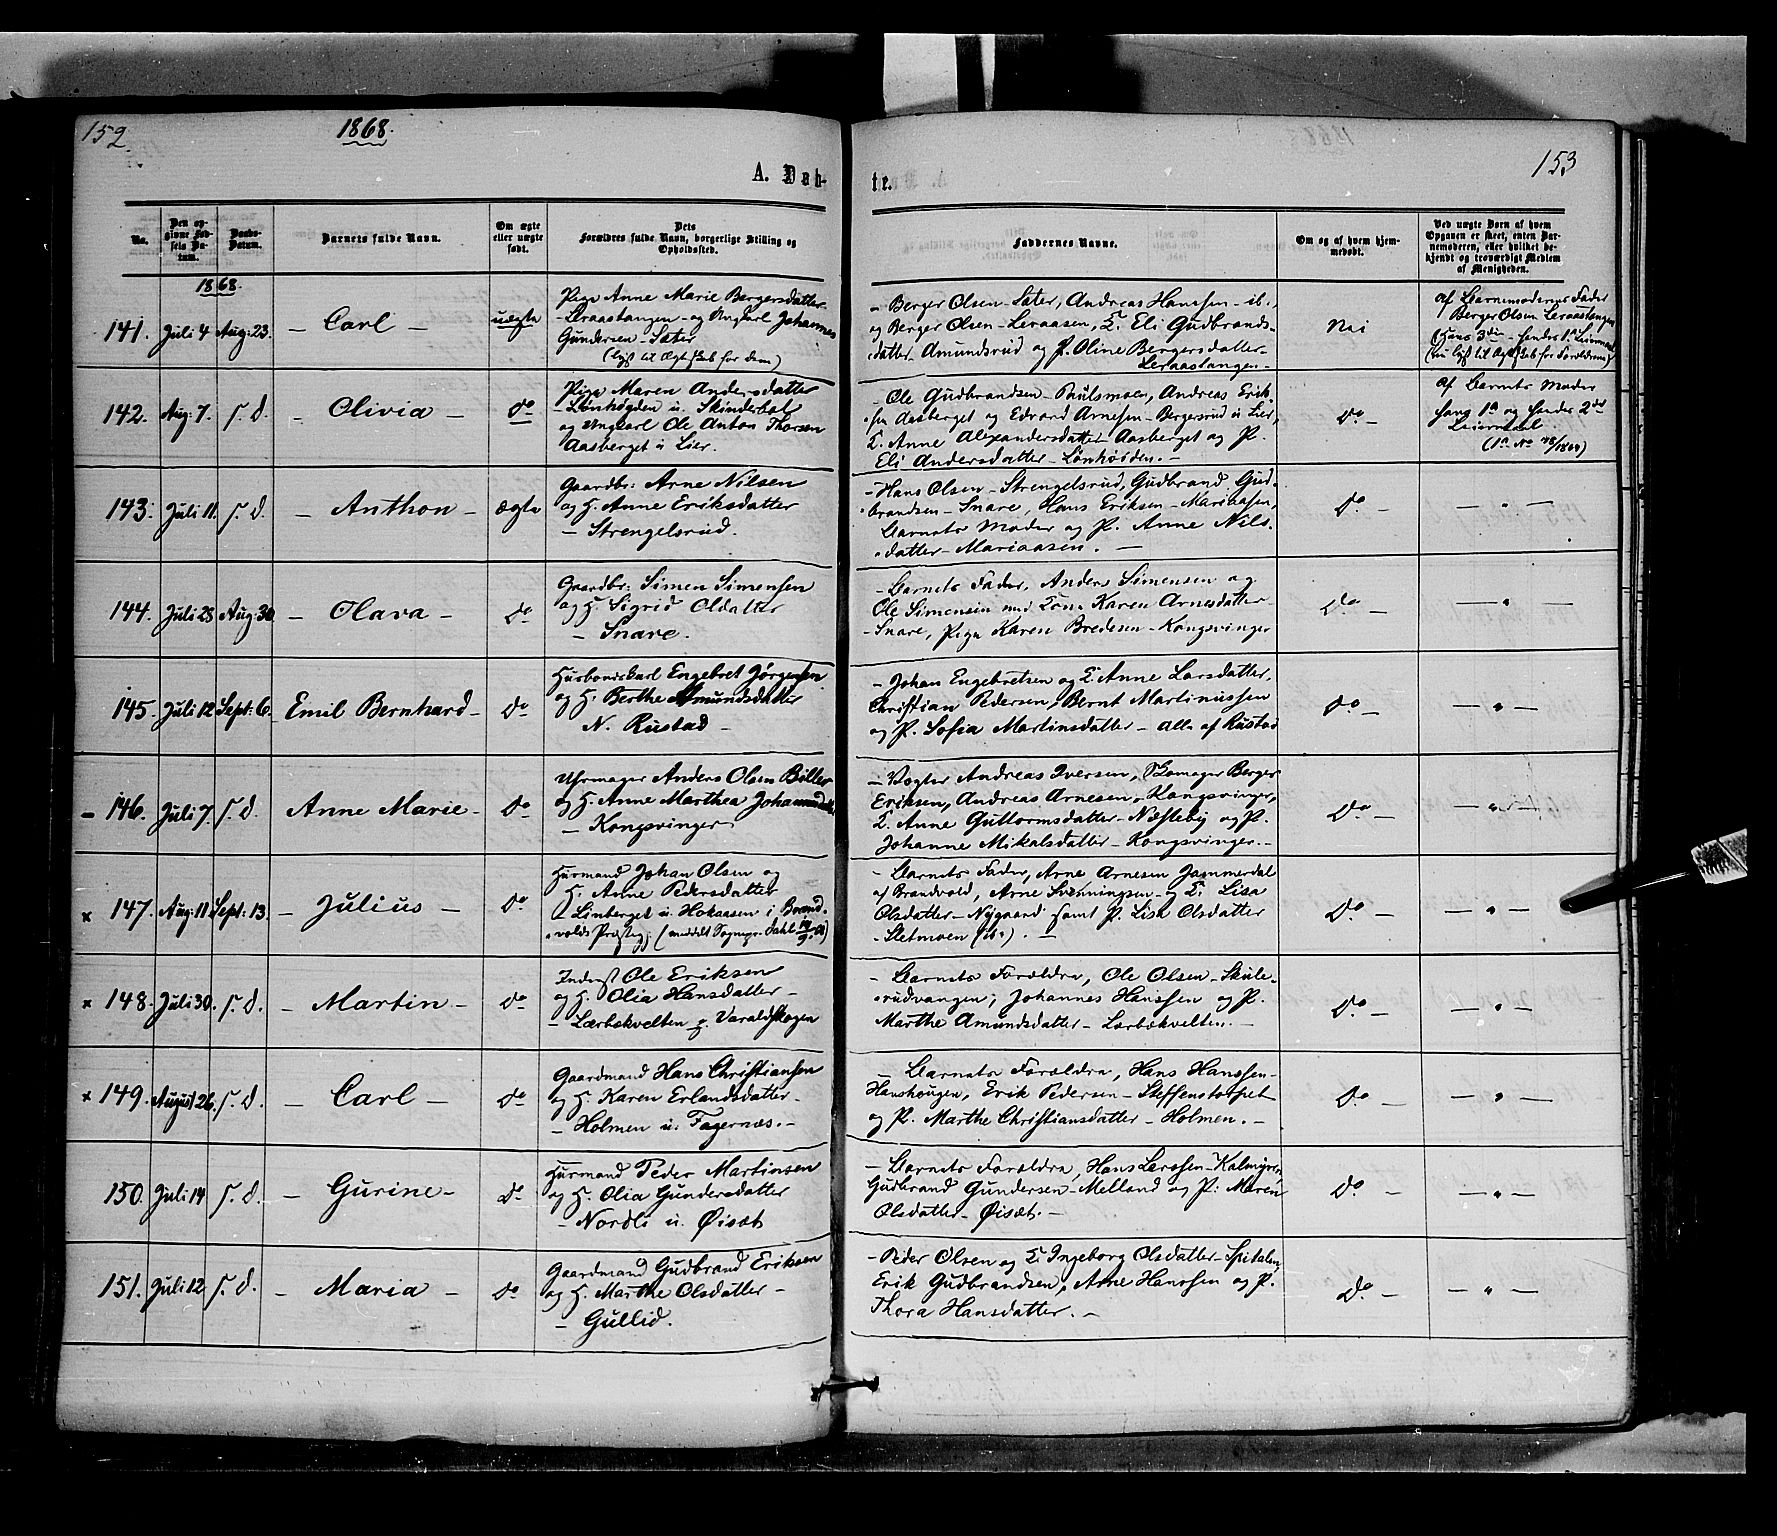 152.
1868.
153
A. Dåb-
te.
No.
Den op-
givne Fød-
sels Da-
tum.
Daabs-
Datum.
Barnets fulde Navn.
Om ægte
eller uægte
født.
Dets
Forældres fulde Navn, borgerlige Stilling og
Opholdssted.
Faddernes Navne.
Om og af hvem hjem-
medøbt.
Ved uægte Børn af hvem
Opgaven er skeet, enten Bar-
nemoderen, eller hvilket be-
kjendt og troværdigt Medlem
af Menigheden.
1868.
141. Juli 4 Aug: 23. – Carl – uægte
Pige Anne Marie Bergersdatter
– Leraastangen – og Ungkarl Johannes
Gundersen – Sæter
(lyst til Ægteskab for dem)
– Berger Olsen – Sæter, Andreas Hanssen – ib.,
og Berger Olsen – Leraasen, K. Eli Gudbrands-
datter Amundsrud og P. Oline Bergersdatter –
Leraastangen –
Nei
af Barnemoderens Fader
Berger Olsen Leraastangen
(Hans 3die – hendes 1ste Leiermaal
(nu lyst til Ægteskab for Forældrene)
142. Aug: 7. s. d. – Olivia – do
Pige Maren Andersdatter
– Lønhøgden u. Skinderbøl
og Ungkarl Ole Anton Thorsen
Aasberget u. Lier.
– Ole Gudbrandsen – Paulsmoen, Andreas Erik-
sen Aasberget og Edvard Arnesen – Bergersrud u. Lier,
K. Anne Alexandersdatter Aasberget og P.
Eli Andersdatter – Lønhøgden. –
do –
af Barnets Moder
hans 1ste og hendes 2det
Leiermaal.
143. Juli 11. s. d. – Anthon – ægte
Gaardbr: Arne Nilsen
og H. Anne Eriksdatter
– Strengelsrud.
– Hans Olsen – Strengelsrud, Gudbrand Gud-
brandsen – Snare, Hans Eriksen – Mariaasen,
Barnets Moder og P. Anne Nils-
datter – Mariaasen. –
do –
– " –
144. Juli 23 Aug: 30 – Olava – do
Gaardbr: Simen Simensen
og H. Sigrid Olsdatter
– Snare.
– Barnets Fader, Anders Simensen og
Ole Simensen med Kone Karen Arnesdatter –
– Snare, Pige Karen Bredesen – Kongsvinger
do –
– " –
145. Juli 12 Sept: 6. Emil Bernhard – do
Husbondskarl Engebret Jørgensen
og H. Berthe Amundsdatter
N. Rustad –
– Johan Engebretsen og K. Anne Larsdatter,
Christian Pedersen, Bernt Martinussen
og P. Sofia Martinsdatter – alle af Rustad
do –
– " –
– 146. Juli 7. s. d. Anne Marie – do
Uhrmager Anders Olsen Biller
og H. Anne Marthea Johannesdtr
– Kongsvinger
– Vægter Andreas Iversen, Skomager Berger
Eriksen, Andreas Arnesen, Kongsvinger,
K. Anne Guttormsdatter – Næsteby og P.
Johanne Mikalsdatter – Kongsvinger. –
do –
– " –
x 147. Aug: 11. Sept: 13. – Julius – do
Husmand Johan Olsen og
H. Anne Pedersdatter
– Linberget u. Hokaasen i Brand-
volds Præstegj.
– Barnets Fader, Arne Arnesen Jammerdal
af Brandvold, Arne Svenningsen og K. Lisa
Olsdatter – Nygaard samt P. Lisa Olsdatter
– Sletmoen (ib.). –
do –
– " –
x 148. Juli 30. s. d. – Martin – do
Inderst Ole Eriksen
og H. Olia Hansdatter –
– Lærbækvelten p. Varaldskogen
– Barnets Forældre, Ole Olsen – Skule-
rudvangen, Johannes Hanssen og P.
Marthe Amundsdatter – Lærbækvelten. –
do –
– " –
x 149. August 26. s. d. – Carl – do
Gaardmand Hans Christiansen
og H. Karen Erlandsdatter –
– Holmen u. Fagernæs. –
– Barnets Forældre, Hans Hanssen –
Hanshougen, Erik Pedersen – Steffenstorpet
og P. Marthe Christiansdatter – Holmen. –
do –
– " –
150. Juli 14 s. d. – Gurine – do
Husmand Peder Martinsen
og H. Olia Gundersdatter
– Nordli u. Øisæt
– Barnets Forældre, Hans Larssen – Kalmyren,
Gudbrand Gundersen – Melland og P. Maren
Olsdatter – Øisæt. –
do –
– " –
151. Juli 12 s. d. – Maria – do
Gaardmand Gudbrand Eriksen
og H. Marthe Olsdatter –
– Gullid.
– Peder Olsen og K. Ingeborg Olsdatter – Spitalen,
Erik Gudbrandsen, Arne Hanssen og P.
Thora Hansdatter. –
do –
– " –